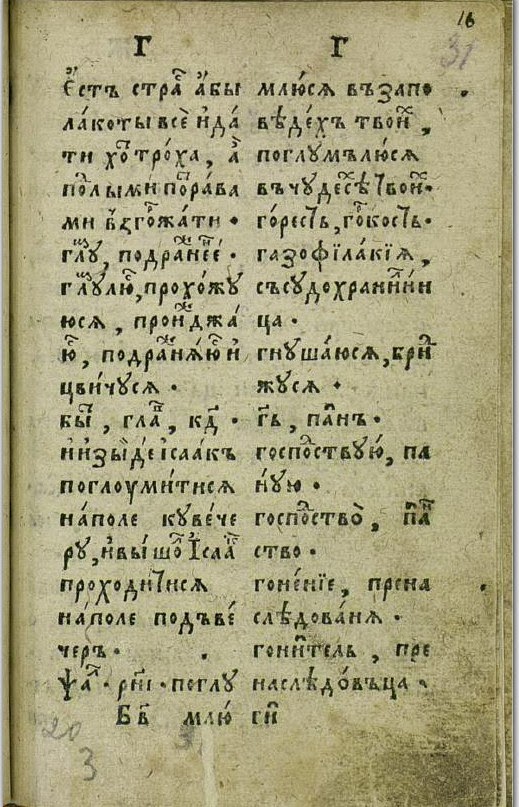 16
31
Г Г
є҆стъ стра҇ а҆бы
ла́котывсѐ и҆да́
ти хо҇ тро́ха, а҆
по҇лыми по҇рава
ми взгожа́ти ·
глꙋ҇, подранен҇є ·
глꙋ́лю҇, прохо́жꙋ
юся, прои҇джа́
ю҇, подраня́ю҇ и҆
цвичꙋ́ся ·
бы҇, гла҇, кд҃ ·
и҆изы́де і҆саакъ
поглоуми́тися
на́поле кꙋве́че
рꙋ, и҆вы́шо҇ І҆саа҇
проходи́тися
на́поле подъве́
черъ ·
ѱа҇ · рн҃і · поглꙋ
млю́ся въ запо
вѣде́хъ твои҇,
поглꙋмълю́ся
въ чꙋдесѣ́ твои҇ ·
го́ресть, го҇кость ·
газофїла́кїя,
съсꙋдохрани́лни
ца ·
гнꙋша́юся, бри҇
жꙋся ·
гь҃, па́нъ ·
госпо҇ствꙋю, па
нꙋю ·
госпо҇ство̀, па҇
ство ·
гоне́нїе, прена
слѣдова́ня ·
гони́тель, пре
наслѣдо́въца ·
Бв҃ млю́ ги҇
20
3
3